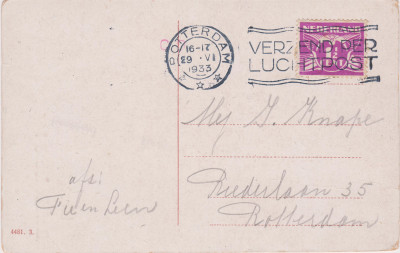 ROTTERDAM
16-17
29 VI
1933
VERZEND PER
LUCHTPOST
NEDERLAND
1½
Mej J. Knape
Riederlaan 35
Rotterdam
afs:
Fie en Leen
4481. 3.